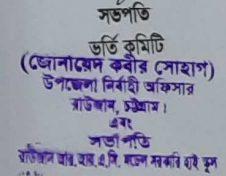 সভাপতি
ভর্তি কমিটি
(জোনায়েদ কবীর সোহাগ)
উপজেলা নির্বাহী অফিসার
রাউজান, চট্টগ্রাম।
এবং
সভাপতি
রাউজান আর, আর, এ,সি, মডেল সরকারি হাই স্কুল